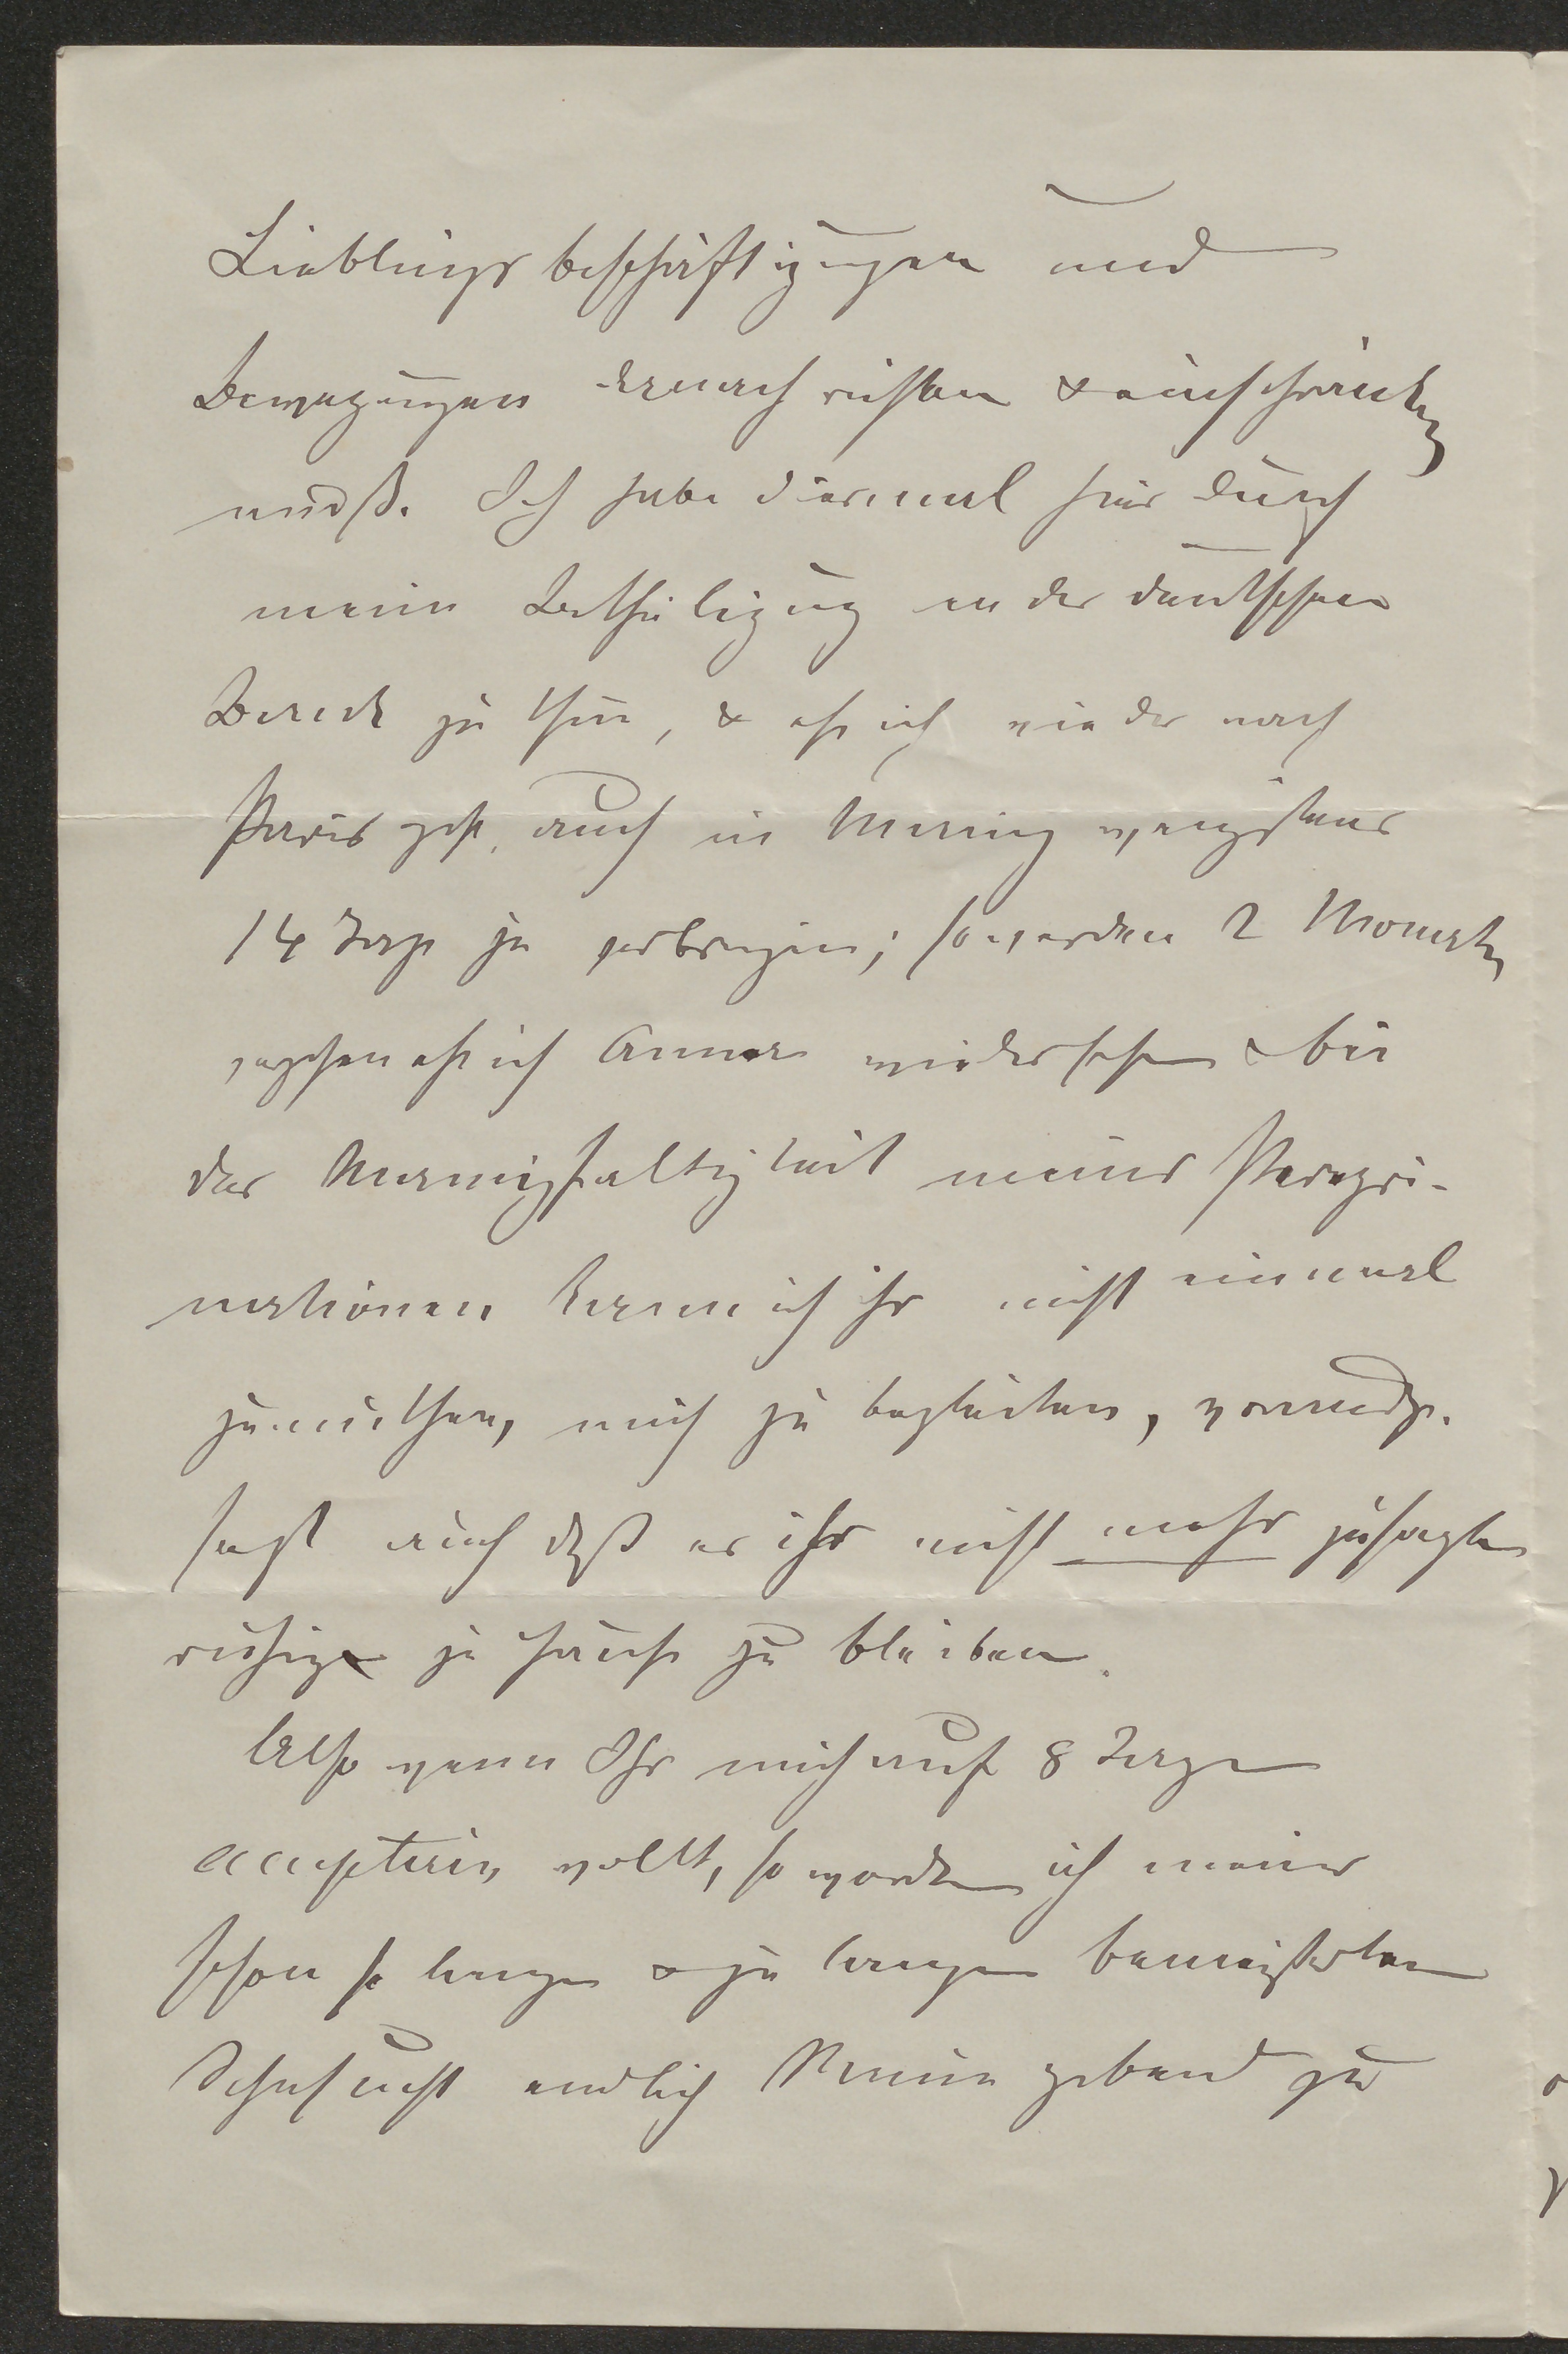 Lieblingsbeschäftigungen und
Bewegungen darnach richten & einschränken
muß. Ich habe diesmal hier durch
meine Betheiligung an der deutschen
Bank zu thun, & ehe ich wieder nach
Paris gehe, auch in Mainz wenigstens
14 Tage zu verbringen; so werden 2 Monate
vergehen ehe ich Anna wiedersehe & bei
der Mannigfaltigkeit meiner Peregri-
nationen kann ich ihr nicht einmal
zumuthen, mich zu begleiten, vorausge-
setzt auch daß es ihr nicht mehr zusagte
ruhig zu Hause zu bleiben.
Also wenn Ihr mich auf 8 Tage
acceptiren wollt, so werde ich meine
schon so lange & zu lange bemeisterte
Sehnsucht endlich Meine gebend zu